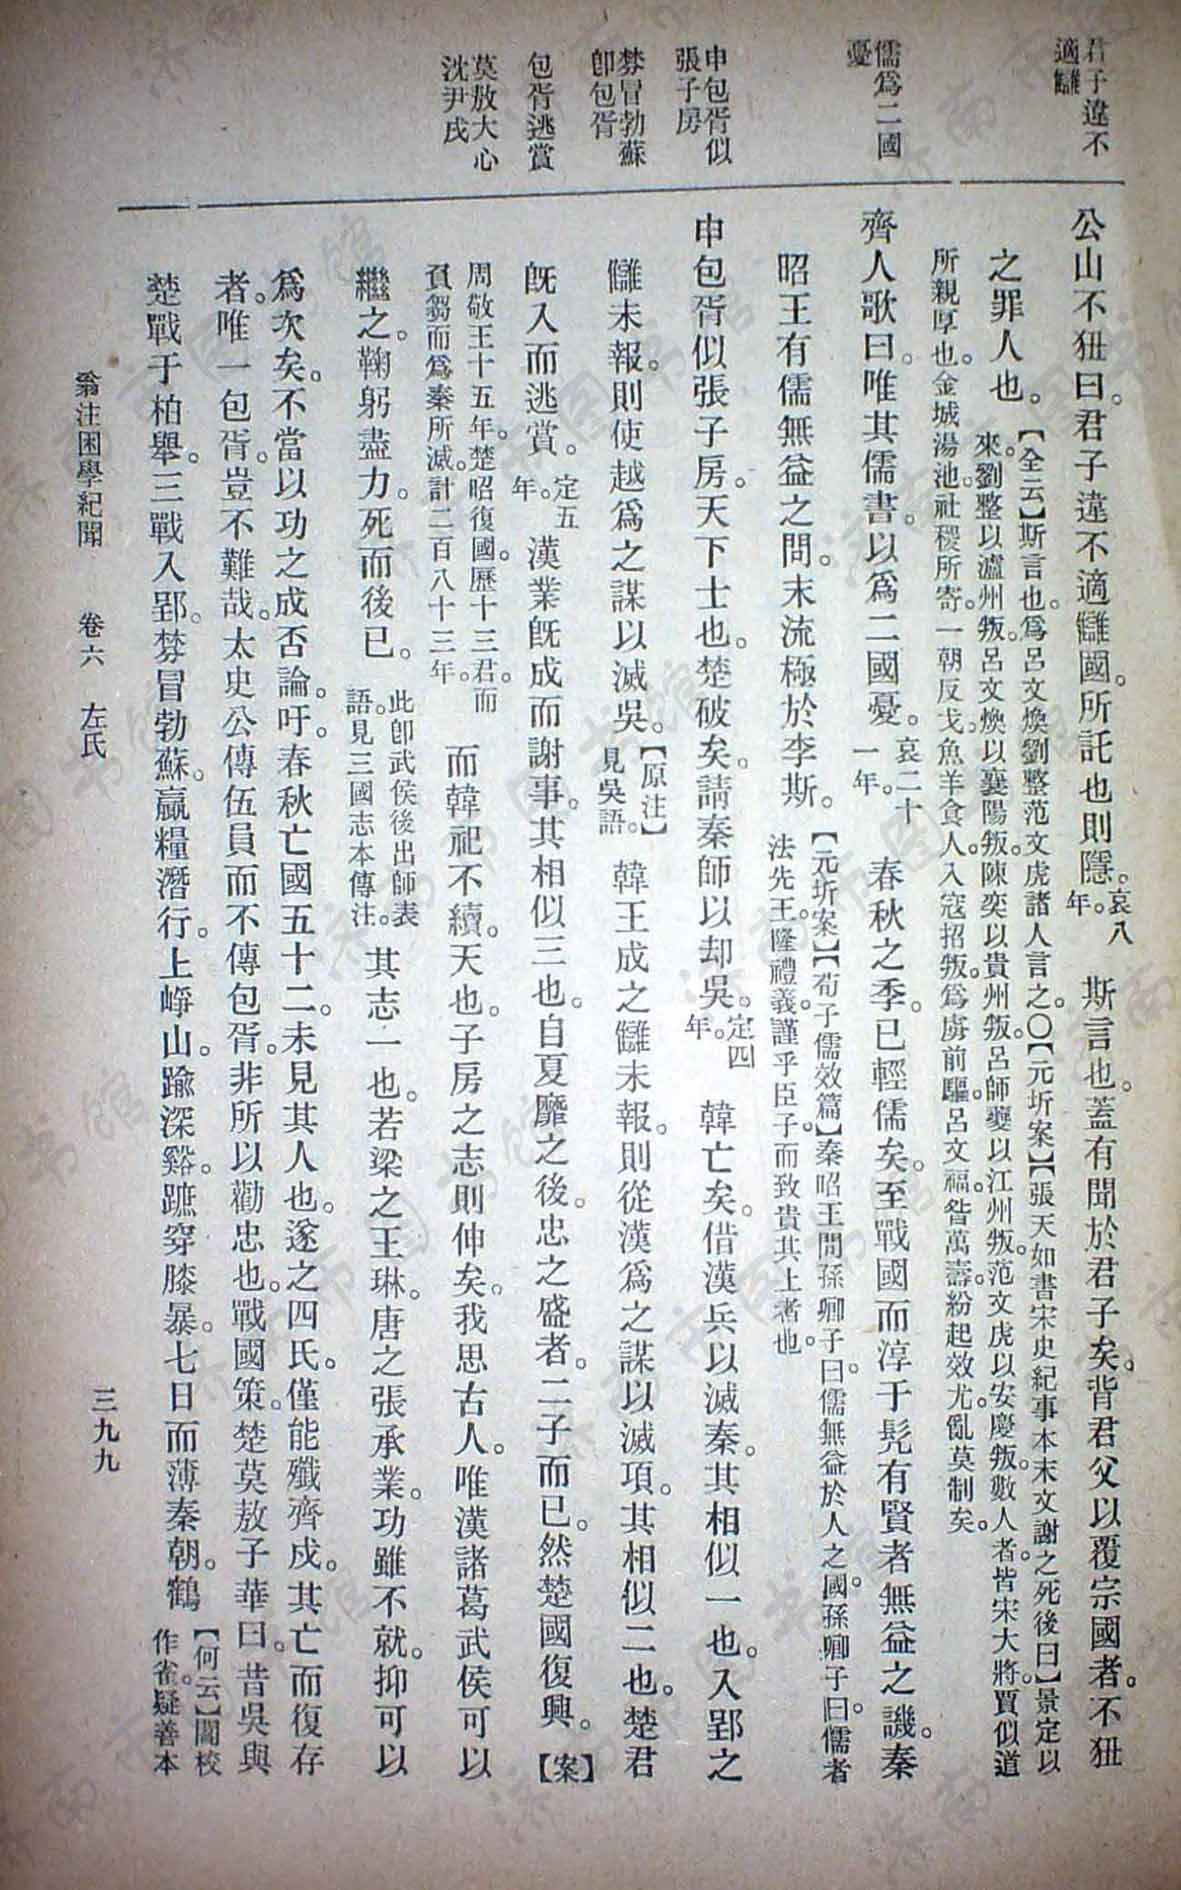 君子違不
適讎
儒爲二國
憂
申包胥似
張子房
棼冒勃蘇
卽包胥
包胥逃賞
莫敖大心
沈尹戌
公山不狃曰。君子違不適讎國。所託也則隱。哀八年。斯言也。蓋有聞於君子矣。背君父以覆宗國者。不狃
之罪人也。【全云】斯言也。爲呂文煥劉整范文虎諸人言之。〇【元圻案】【張天如書宋史紀事本末文謝之死後曰】景定以
來。劉整以瀘州叛。呂文煥以襄陽叛。陳奕以貴州叛。呂師夔以江州叛。范文虎以安慶叛。數人者。皆宋大將。賈似道
所親厚也。金城湯池。社稷所寄。一朝反戈。魚羊食人。入寇招叛。爲虜前驅。呂文福。昝萬壽。紛起效尤。亂莫制矣。
齊人歌曰。唯其儒書。以爲二國憂。哀二十一年。春秋之季。已輕儒矣。至戰國而淳于髡有賢者無益之譏。秦
昭王有儒無益之問。末流極於李斯。【元圻案】【荀子儒效篇】秦昭王問孫卿子曰。儒無益於人之國。孫卿子曰。儒者
法先王。隆禮義。謹乎臣子。而致貴其上者也。
申包胥似張子房。天下士也。楚破矣。請秦師以却吳。定四年。韓亡矣。借漢兵以滅秦。其相似一也。入郢之
讎未報。則使越爲之謀以滅吳。【原注】見吳語。韓王成之讎未報。則從漢爲之謀以滅項。其相似二也。楚君
旣入而逃賞。定五年。漢業旣成而謝事。其相似三也。自夏靡之後。忠之盛者。二子而已。然楚國復興。【案】
周敬王十五年。楚昭復國。歷十三君。而
負芻而爲秦所滅。計二百八十三年。而韓祀不續。天也。子房之志則伸矣。我思古人。唯漢諸葛武侯可以
繼之。鞠躬盡力。死而後已。此卽武侯後出師表語。見三國志本傳注。其志一也。若梁之王琳。唐之張承業。功雖不就。抑可以
爲次矣。不當以功之成否論。吁。春秋亡國五十二。未見其人也。遂之四氏。僅能殲齊戍。其亡而復存
者。唯一包胥。豈不難哉。太史公傳伍員而不傳包胥。非所以勸忠也。戰國策。楚莫敖子華曰。昔吳與
楚戰于柏舉。三戰入郢。棼冒勃蘇。贏糧潛行。上崢山。踰深谿。蹠穿膝暴。七日而薄秦朝。鶴【何云】閣校作雀。疑善本
翁注困學紀聞 卷六 左氏 三九九